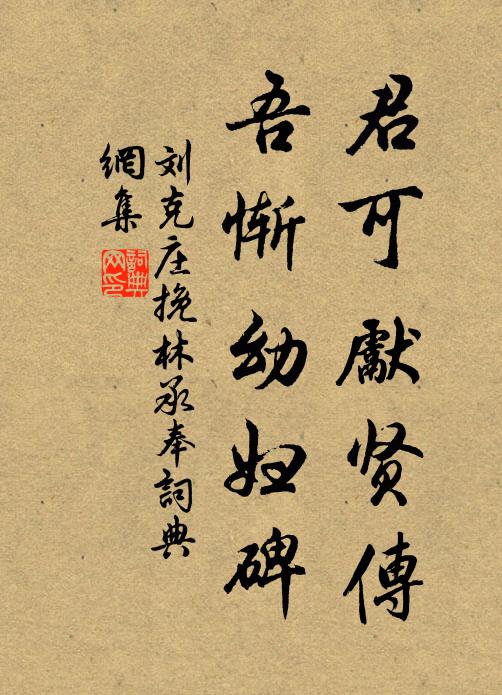 君可獻贤傳
吾惭幼妇碑
刘克庄挽林承奉詞典
網集
詞典网印